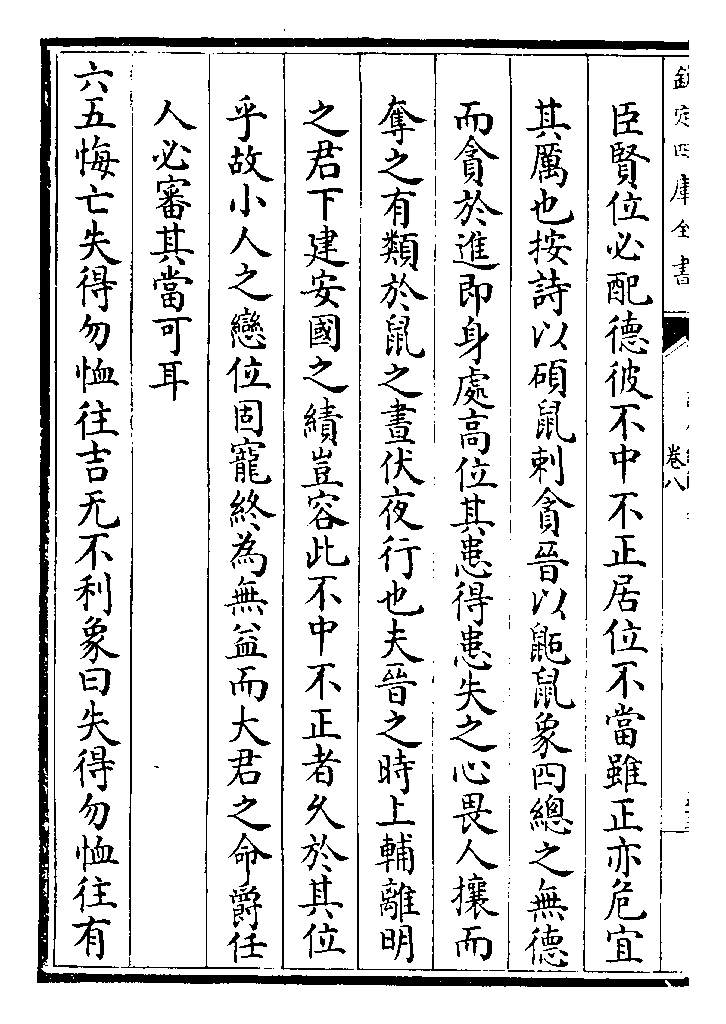 欽定四庫全書
卷八
臣賢位必配德彼不中不正居位不當雖正亦危宜
其厲也按詩以碩鼠刺貪晉以鼫鼠象四總之無德
而貪於進即身處高位其患得患失之心畏人攘而
奪之有類於鼠之晝伏夜行也夫晉之時上輔離明
之君下建安國之績豈容此不中不正者久於其位
乎故小人之戀位固寵終為無益而大君之命爵任
人必審其當可耳
六五悔亡失得勿恤往吉无不利象曰失得勿恤往有